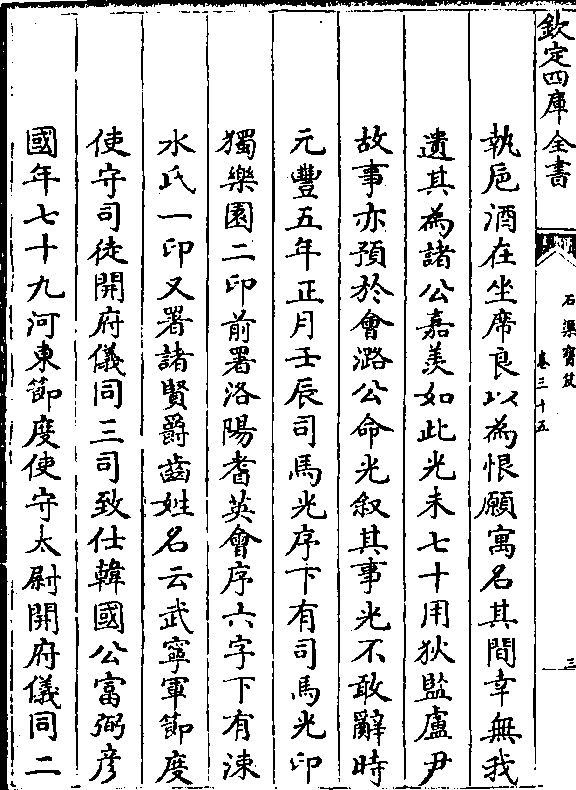 欽定四庫全書
石渠寶笈
卷三十五
三
執巵酒在坐席良以為恨願寓名其間幸無我
遺其為諸公嘉羡如此光未七十用狄監盧尹
故事亦預於會潞公命光叙其事光不敢辭時
元豐五年正月壬辰司馬光序下有司馬光印
獨樂園二印前署洛陽耆英會序六字下有涑
水氏一印又署諸賢爵齒姓名云武寧軍節度
使守司徒開府儀同三司致仕韓國公富弼彦
國年七十九河東節度使守太尉開府儀同二